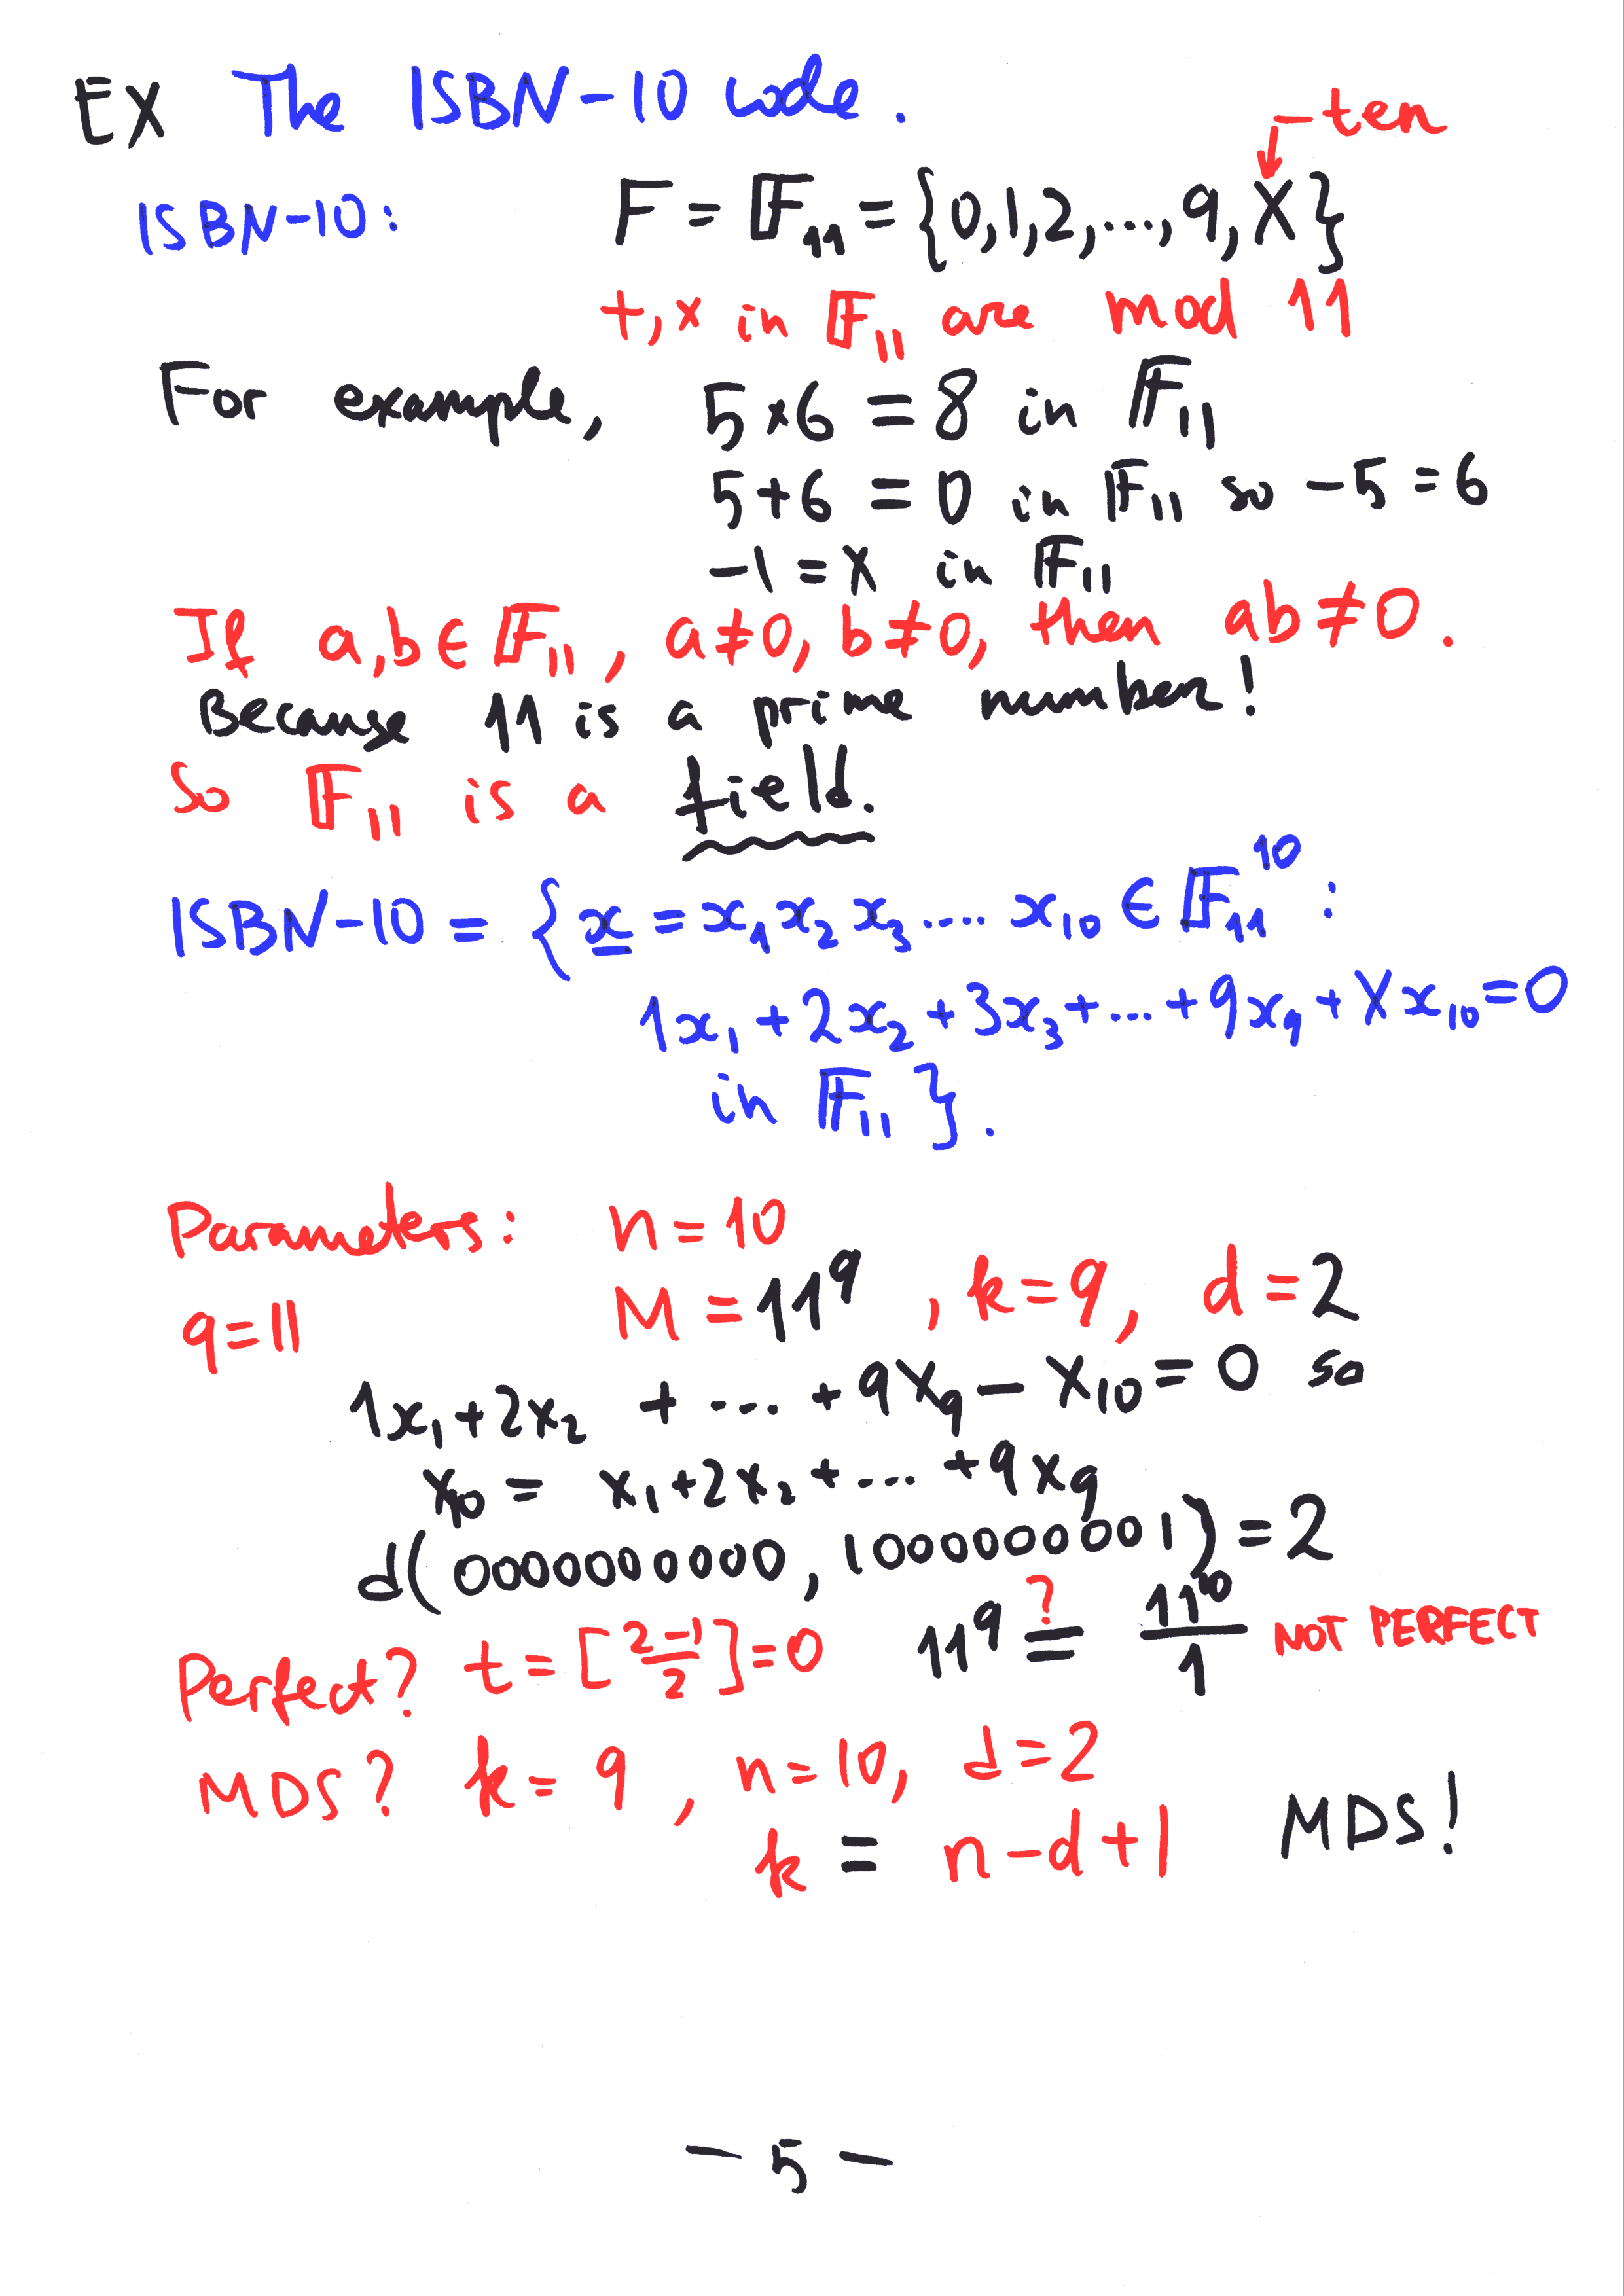 EX The ISBN-10 code.
– ten
ISBN-10: F = 𝔽₁₁ = {0,1,2,...,9,X}
+,× in 𝔽₁₁ are mod 11
For example, 5×6 = 8 in 𝔽₁₁
5+6 = 0 in 𝔽₁₁ so −5 = 6
−1 = X in 𝔽₁₁
If a,b ∈ 𝔽₁₁, a≠0, b≠0, then ab≠0.
Because 11 is a prime number!
So 𝔽₁₁ is a field.
ISBN-10 = { x = x₁x₂x₃.... x₁₀ ∈ 𝔽₁₁¹⁰ :
1x₁ + 2x₂ + 3x₃ + ... + 9x₉ + Xx₁₀ = 0
in 𝔽₁₁ }.
Parameters: n = 10
q = 11 M = 11⁹, k = 9, d = 2
1x₁ + 2x₂ + ... + 9x₉ − x₁₀ = 0 so
x₁₀ = x₁ + 2x₂ + ... + 9x₉
d(0000000000, 1000000001) = 2
Perfect? t = [(2−1)/2] = 0 11⁹ =? 11¹⁰/1 NOT PERFECT
MDS? k = 9, n = 10, d = 2
k = n − d + 1 MDS!
– 5 –